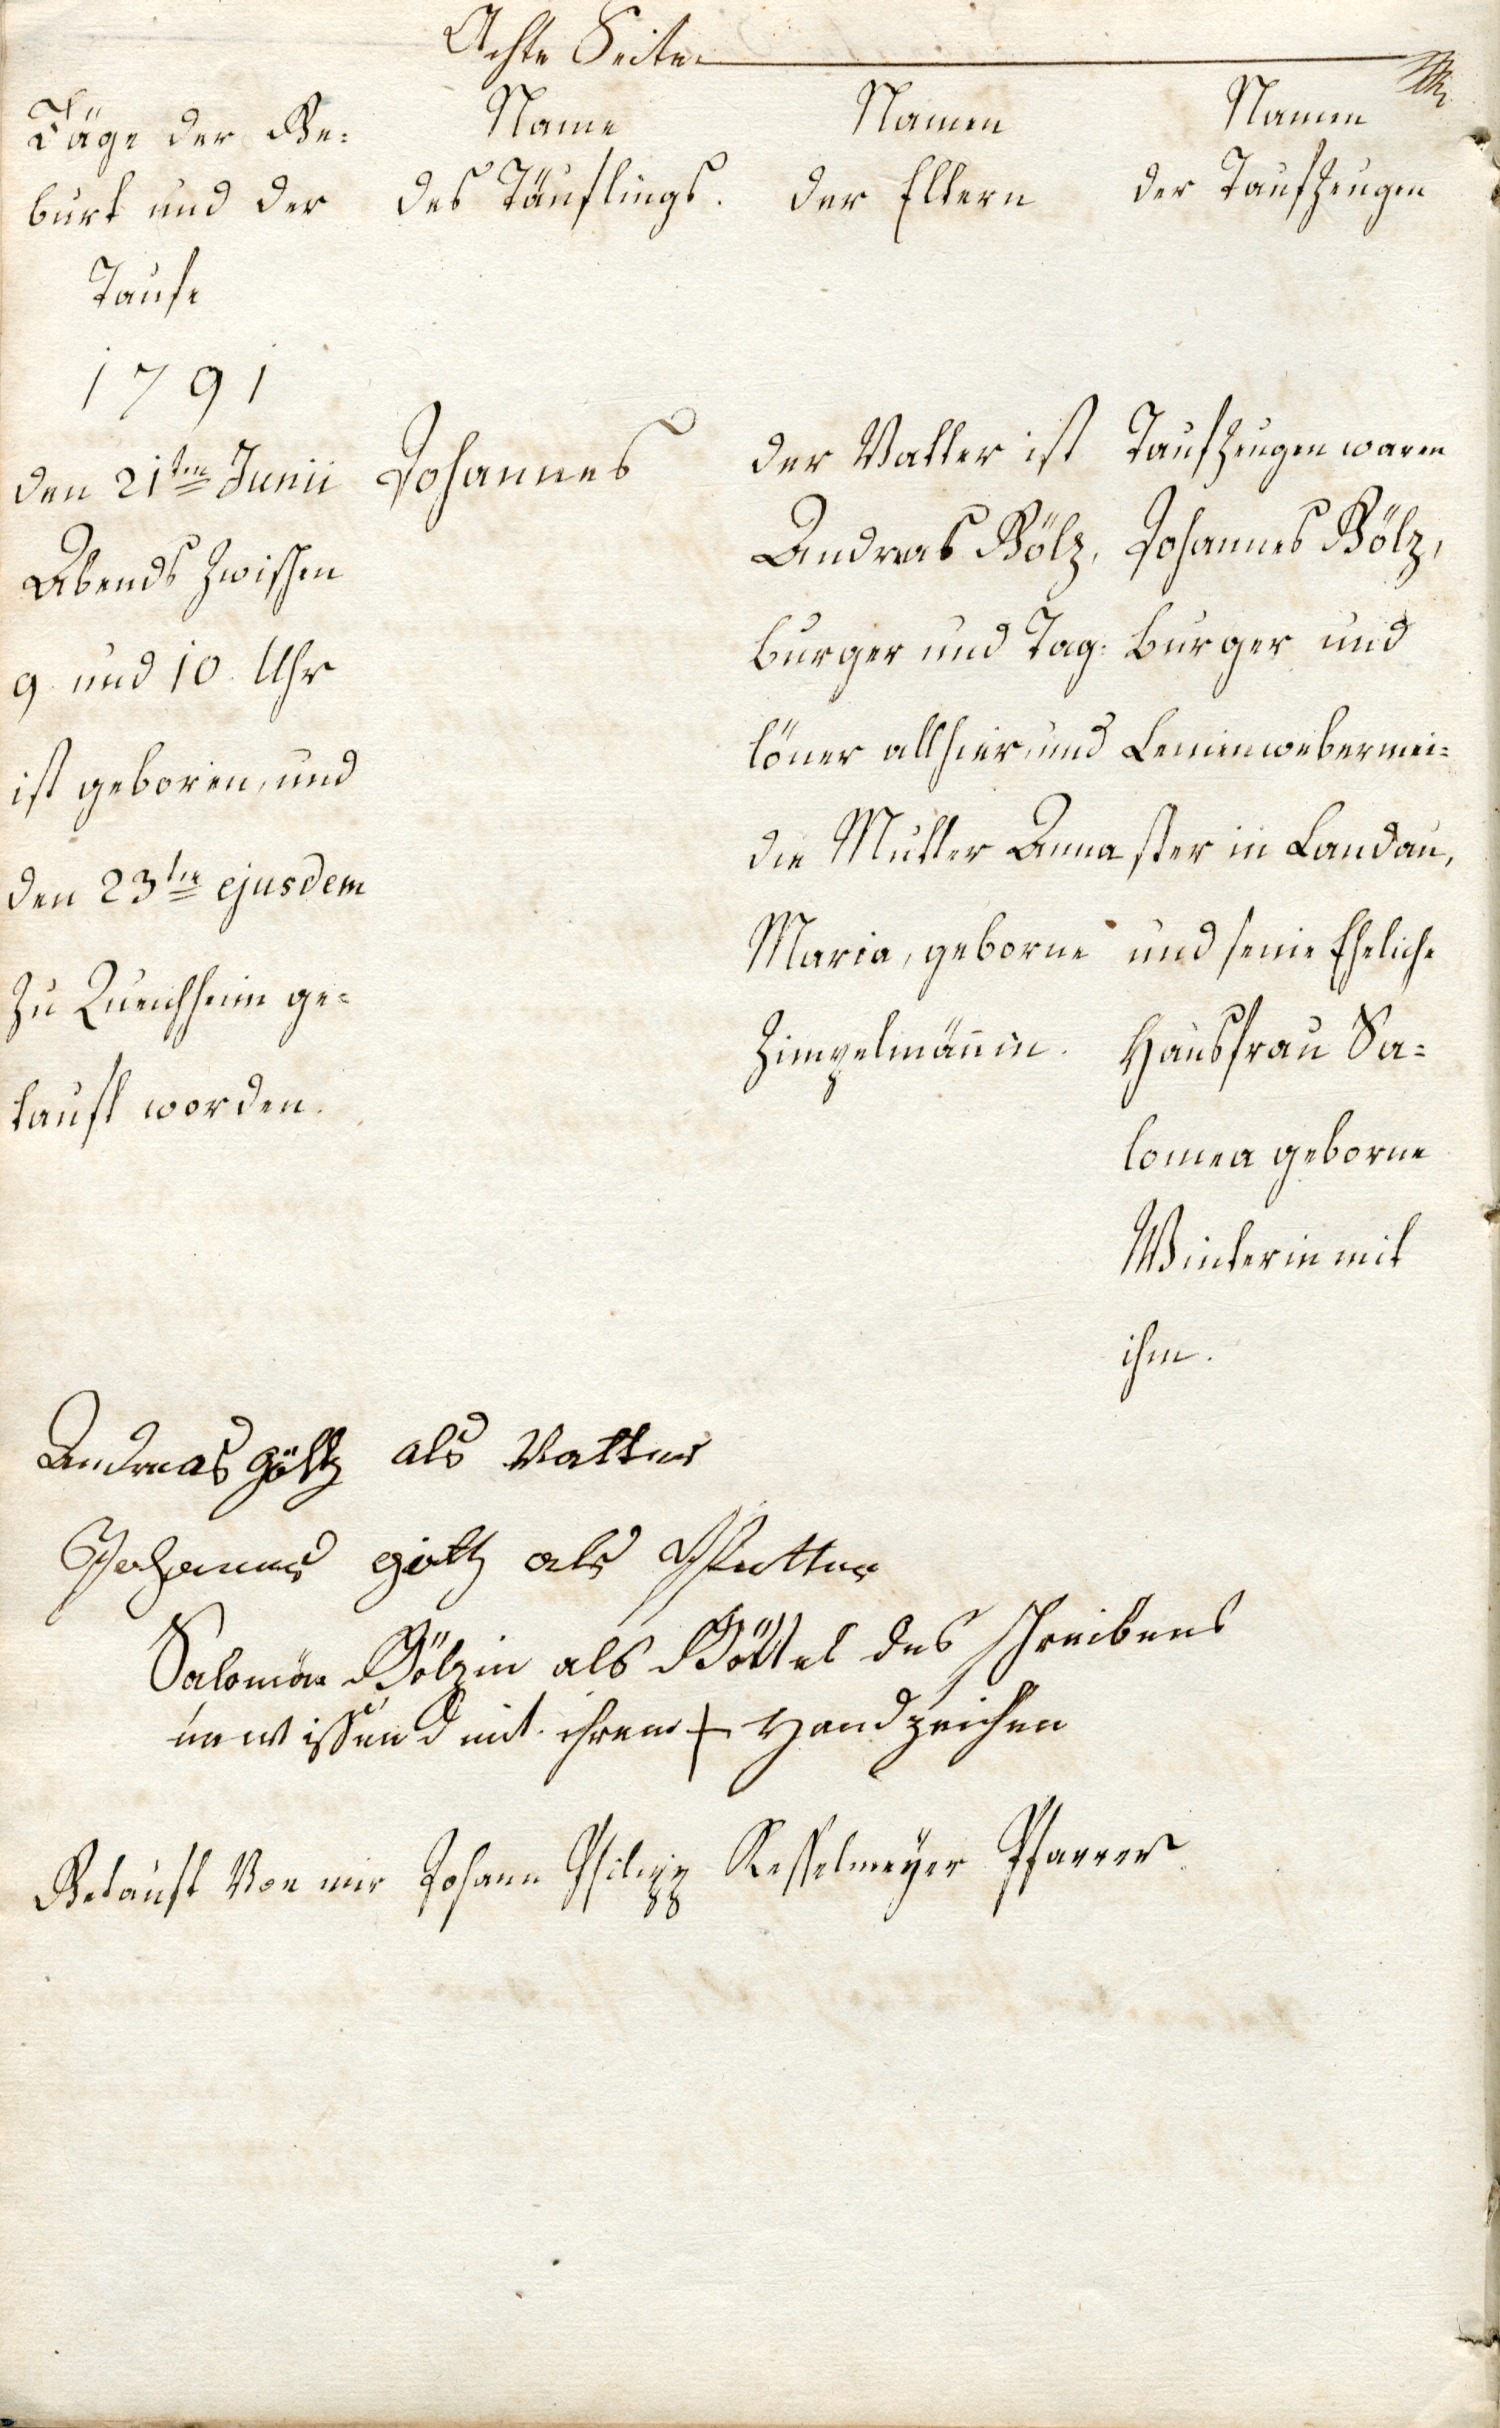 Achte Seite.
Täge der Ge=
burt und der
Taufe
Name
des Täuflings.
Namen
der Eltern
Namen
der Taufzeugen
1791
den 21ten Junii
Abends zwischen
9 und 10 Uhr
ist geboren, und
den 23ten ejusdem
zu Queichheim ge=
tauft worden.
Johannes
der Vatter ist
Andreas Gölz,
burger und Tag=
löner allhier, und
die Mutter Anna
Maria, geborne
Zimpelmännin.
Taufzeugen waren
Johannes Gölz,
burger und
Leinenwebermei=
ster in Landau,
und seine Eheliche
Hausfrau Sa=
lomea geborne
Winterin mit
ihm.
Andreas göltz als Vatter
Johannes götz als
Salomea Gölzin als Göttel des schreibens
unwissend mit ihrem + Handzeichen
Getauft Von mir Johann Philipp Kesselmeyer Pfarrer